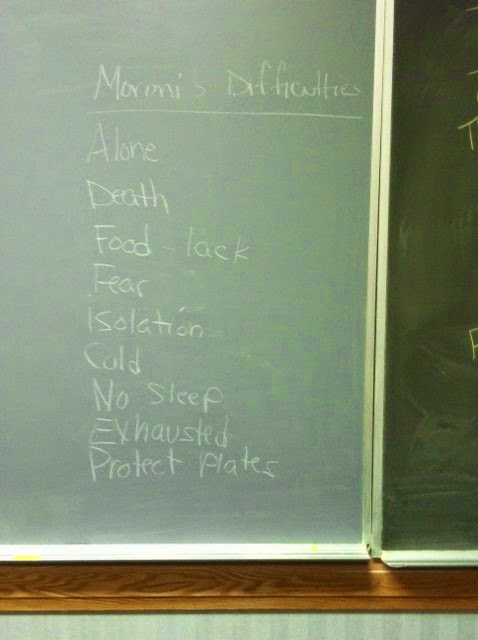 Moroni's Difficulties
Alone
Death
Food - lack
Fear
Isolation
Cold
No Sleep
Exhausted
Protect Plates